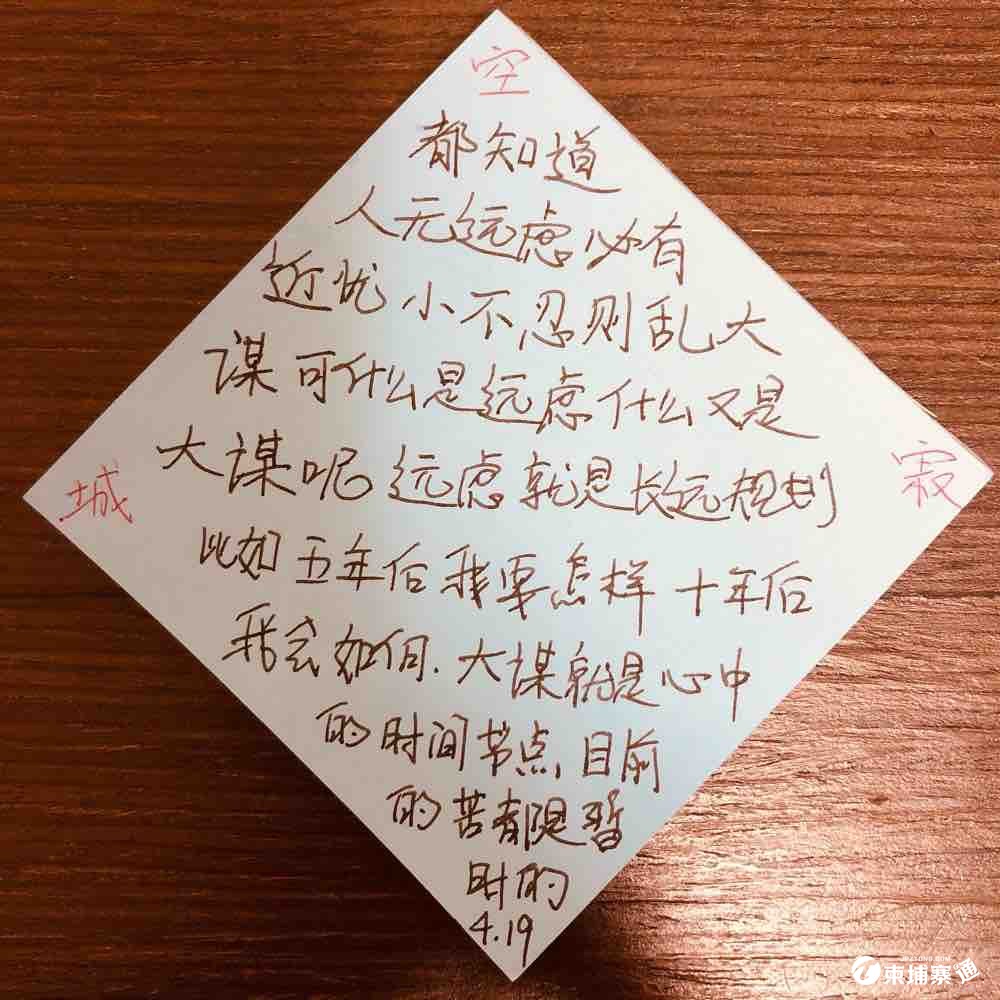 空
都知道
人无远虑必有
近忧 小不忍则乱大
谋 可什么是远虑 什么又是
大谋呢 远虑就是长远规划
寂
城
比如五年后我要怎样 十年后
我会如何.大谋就是心中
的时间节点,目前
的苦都是暂
时的
4.19
柬埔寨通